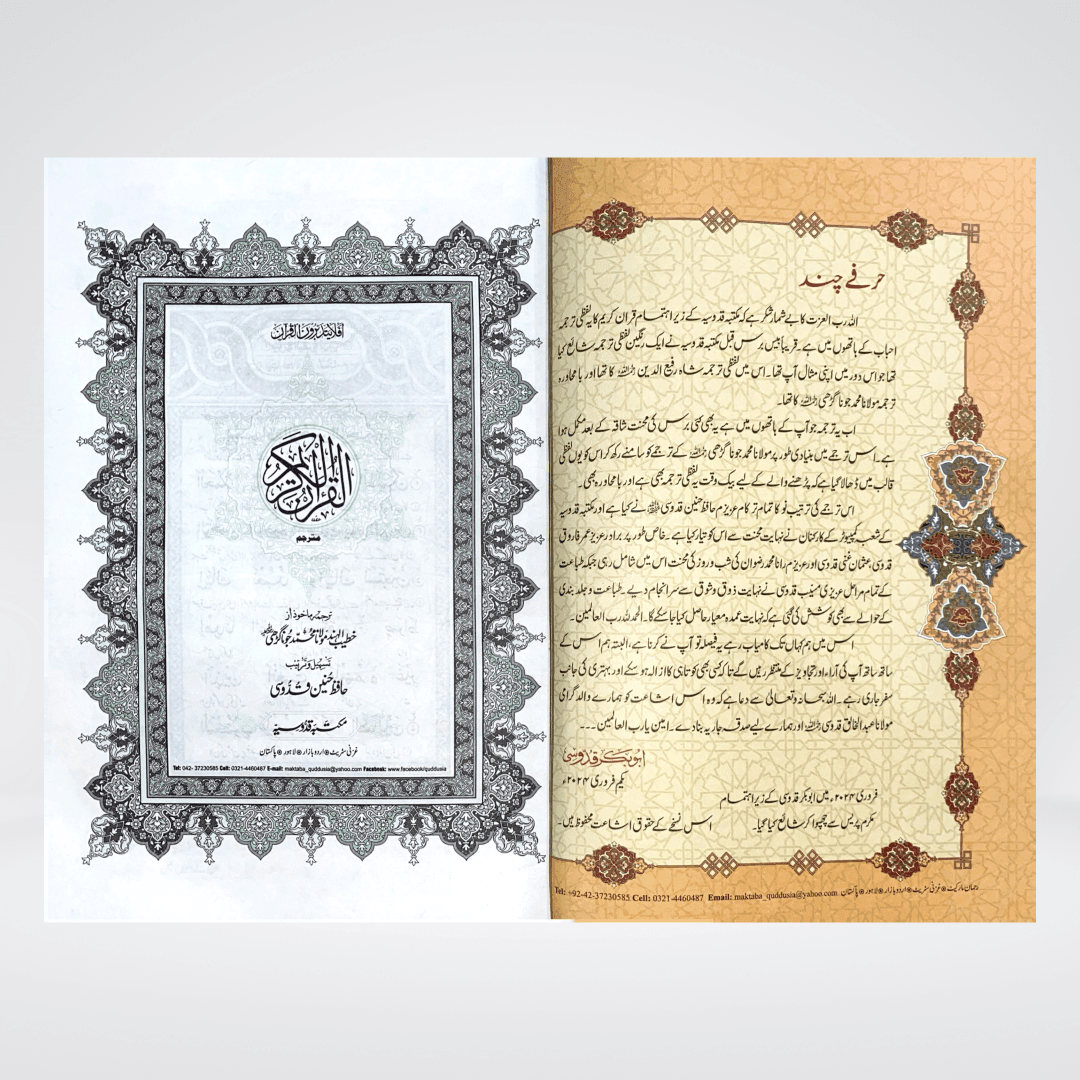 حرفے چند
اللہ رب العزت کا بے شمار شکر ہے کہ مکتبہ قدوسیہ کے زیر اہتمام قران کریم کا یہ لفظی ترجمہ
احباب کے ہاتھوں میں ہے۔ قریباً بیس برس قبل مکتبہ قدوسیہ نے ایک رنگین لفظی ترجمہ شائع کیا
تھا جو اس دور میں اپنی مثال آپ تھا۔ اس میں لفظی ترجمہ شاہ رفیع الدین رحمہ اللہ کا تھا اور با محاورہ
ترجمہ مولانا محمد جونا گڑھی رحمہ اللہ کا تھا۔
اب یہ ترجمہ جو آپ کے ہاتھوں میں ہے یہ بھی کئی برس کی محنت شاقہ کے بعد مکمل ہوا
ہے۔ اس ترجمے میں بنیادی طور پر مولانا محمد جونا گڑھی رحمہ اللہ کے ترجمے کو سامنے رکھ کر اس کو یوں لفظی
قالب میں ڈھالا گیا ہے کہ پڑھنے والے کے لیے بیک وقت یہ لفظی ترجمہ بھی ہے اور با محاورہ بھی۔
اس ترجمے کی ترتیب نو کا تمام تر کام عزیزم حافظ حنین قدوسی نے کیا ہے اور مکتبہ قدوسیہ
کے شعبہ کمپیوٹر کے کارکنان نے نہایت محنت سے اس کو تیار کیا ہے۔ خاص طور پر برادر عزیز عمر فاروق
قدوسی، عثمان غنی قدوسی اور عزیزم رانا محمد رضوان کی شب و روز کی محنت اس میں شامل رہی جبکہ طباعت
کے تمام مراحل عزیزی منیب قدوسی نے نہایت ذوق و شوق سے سر انجام دیے۔ طباعت و جلد بندی
کے حوالے سے بھی کوشش کی گئی ہے کہ نہایت عمدہ معیار حاصل کیا جا سکے گا۔ الحمد للہ رب العالمین۔
اس میں ہم کہاں تک کامیاب رہے یہ فیصلہ تو آپ نے کرنا ہے، البتہ ہم اس کے
ساتھ ساتھ آپ کی آراء اور تجاویز کے منتظر رہیں گے تاکہ کسی بھی کوتاہی کا ازالہ ہو سکے اور بہتری کی جانب
سفر جاری رہے۔ اللہ سبحانہ وتعالی سے دعا ہے کہ وہ اس اشاعت کو ہمارے والد گرامی
مولانا عبد الخالق قدوسی رحمہ اللہ اور ہمارے لیے صدقہ جاریہ بنا دے۔ امین یارب العالمین۔۔۔
ابوبکر قدوسی
یکم فروری ۲۰۲۴ء
فروری ۲۰۲۴ء میں ابوبکر قدوسی کے زیر اہتمام
مکرم پریس سے چھپوا کر شائع کیا گیا۔ اس نسخے کے حقوق اشاعت محفوظ ہیں۔
رحمان مارکیٹ غزنی سٹریٹ اردو بازار لاہور پاکستان Tel: +92-42-37230585 Cell: 0321-4460487 Email: maktaba_quddusia@yahoo.com
افلا یتدبرون القرآن
القرآن الکریم
مترجم
ترجمہ ماخوذ از
خطیب الہند مولانا محمد جوناگڑھی
تسہیل و ترتیب
حافظ حنین قدوسی
مکتبہ قدوسیہ
غزنی سٹریٹ اردو بازار لاہور پاکستان
Tel: 042- 37230585 Cell: 0321-4460487 E-mail: maktaba_quddusia@yahoo.com Facebook: www.facebook/quddusia